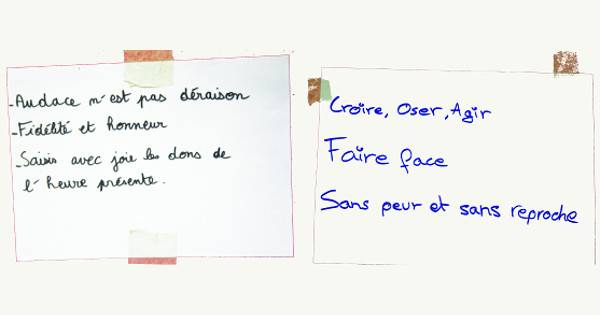 - Audace n'est pas déraison
- Fidélité et honneur
- Saisis avec joie les dons de
l'heure présente.
Croire, Oser, Agir
Faire face
Sans peur et sans reproche